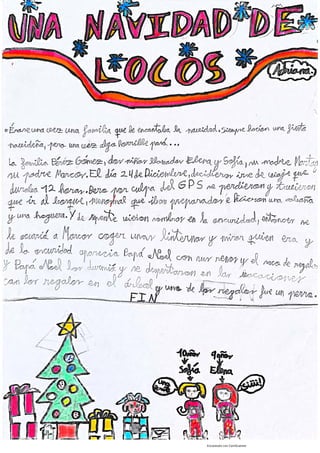 UNA NAVIDAD DE
LOCOS
Adriana.
Érase una vez una familia que le encantaba la navidad. Siempre hacían una fiesta
navideña, pero una vez algo horrible pasó...
La familia Pérez Gómez, dos niñas llamadas Elena y Sofía, su madre Marta y
su padre Marcos. El día 24 de Diciembre, decidieron irse de viaje que
duraba 12 horas. Pero por culpa del GPS se perdieron y tuvieron
que ir al bosque, menos mal que iban preparados e hicieron una cabaña
y una hoguera. Y de repente vieron sombras en la oscuridad, entonces se
le ocurrió a Marcos coger unas linternas y mirar quien era, y
de la oscuridad aparecía Papá Noel con sus renos y el saco de regalos
y Papá Noel los durmió y se despertaron en las
con los regalos en el árbol y uno de los regalos fue un perro.
FIN
10 años
9 años
Sofía
Elena
¡Siii!
Escaneado con CamScanner